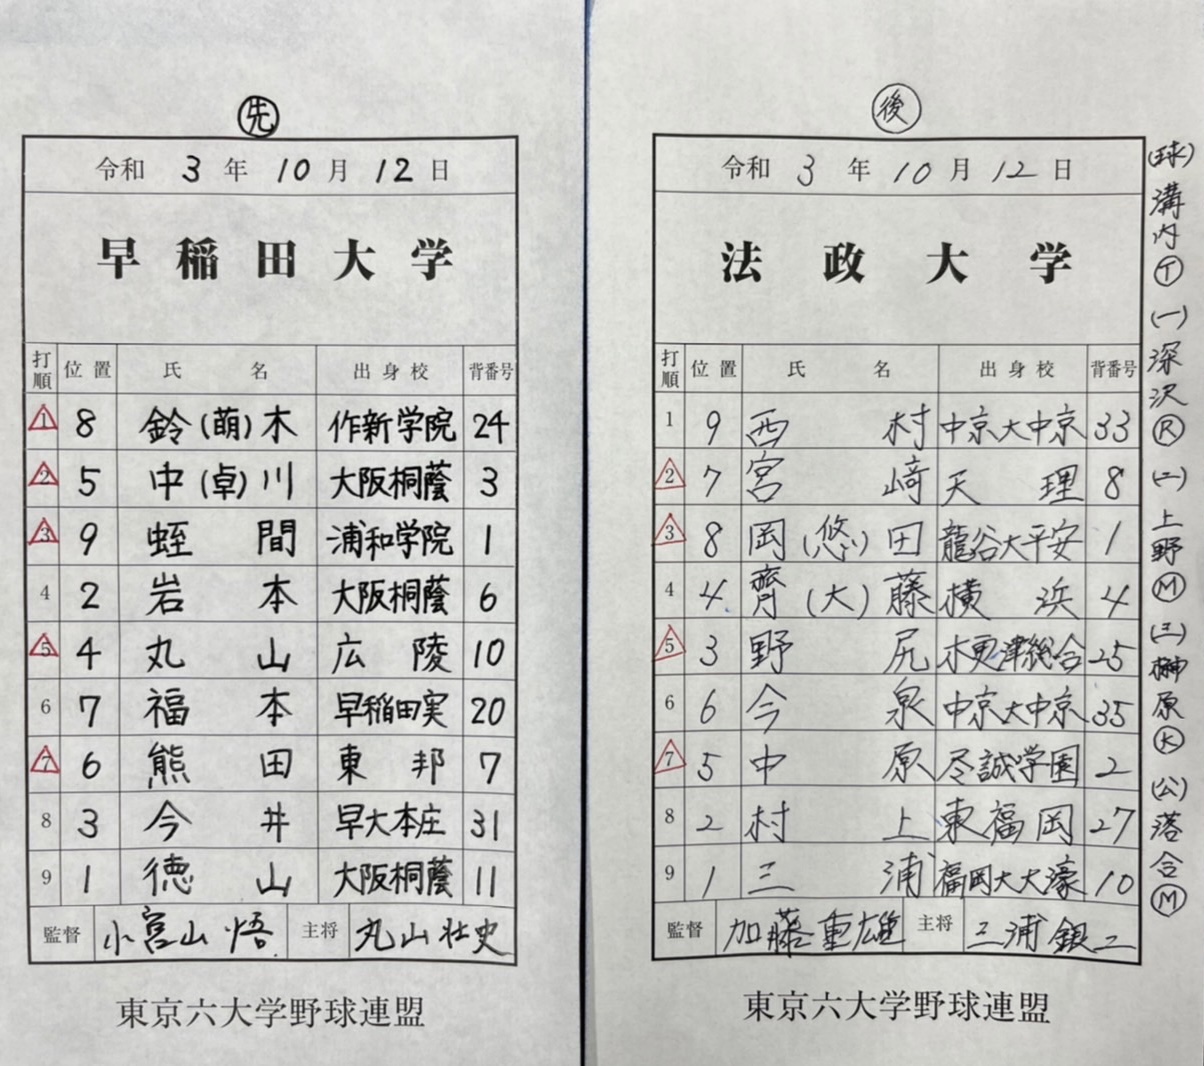 先
令和 3 年 10 月 12 日
早稲田大学
打順 位置 氏名 出身校 背番号
1 8 鈴(萌)木 作新学院 24
2 5 中(卓)川 大阪桐蔭 3
3 9 蛭間 浦和学院 1
4 2 岩本 大阪桐蔭 6
5 4 丸山 広陵 10
6 7 福本 早稲田実 20
7 6 熊田 東邦 7
8 3 今井 早大本庄 31
9 1 徳山 大阪桐蔭 11
監督 小宮山 悟 主将 丸山壮史
東京六大学野球連盟
後
令和 3 年 10 月 12 日
法政大学
打順 位置 氏名 出身校 背番号
1 9 西村 中京大中京 33
2 7 宮﨑 天理 8
3 8 岡(悠)田 龍谷大平安 1
4 4 齊(大)藤 横浜 4
5 3 野尻 木更津総合 25
6 6 今泉 中京大中京 35
7 5 中原 尽誠学園 2
8 2 村上 東福岡 27
9 1 三浦 福岡大大濠 10
監督 加藤重雄 主将 三浦銀二
東京六大学野球連盟
(球)溝内Ⓣ (一)深沢Ⓡ (二)上野Ⓜ (三)榊原Ⓚ (公)落合Ⓜ